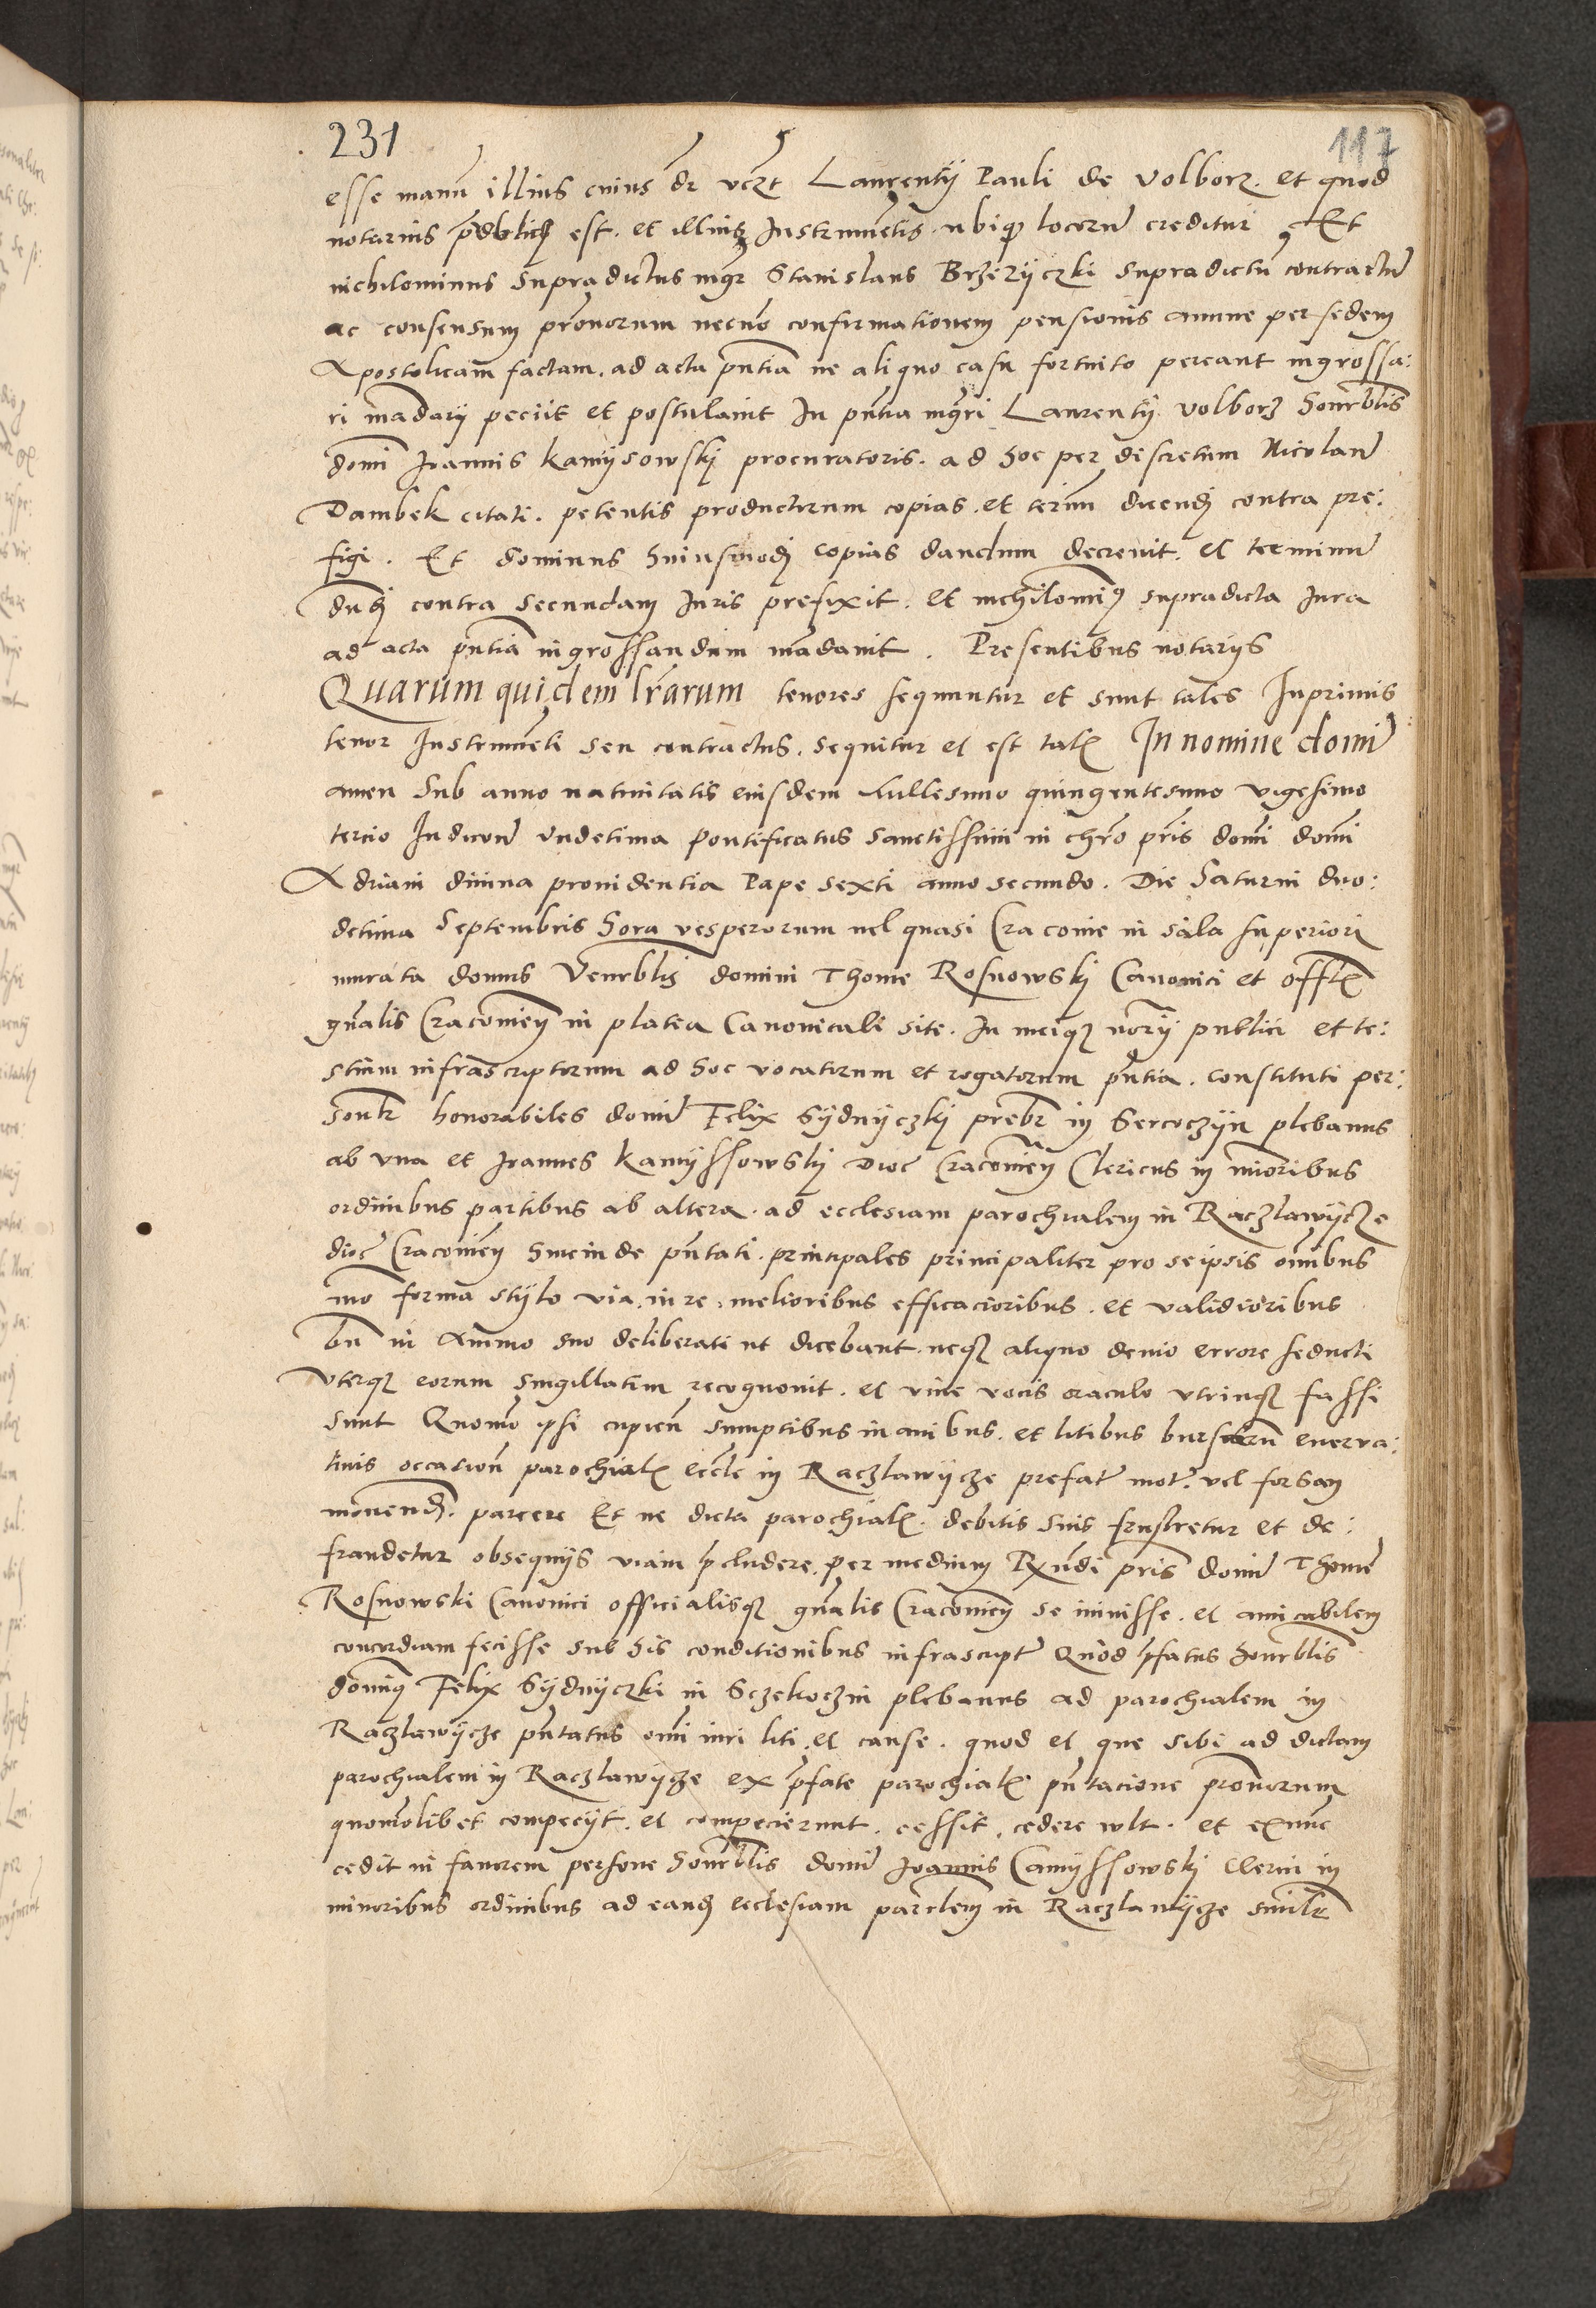 231
117
esse manu illius cuius dr vczt Laurentij Pauli de Volborz. et quod
notarius publicus est. et illius Instrumentis ubique locorum creditur Et
nichilominus supradictus mgr Stanislaus Brzezyczki supradictum contractum
ac consensum pronorum necno confirmationem pensionis annue per sedem
Apostolicam factam. ad acta pntia ne aliquo casu fortuito pereant ingrossa:
ri madarij peciit et postulauit In pntia mgri Laurentij Volborz honrblis
domi Joannis Kamysowskj procuratoris. ad hoc per discretum Nicolaum
Dambek citati. petentis productorum copias. et terim dicendj contra pre:
figi. Et dominus huiusmodj copias dandum decreuit. et terminum
dndj contra secundam Juris prefixit. et nichilominus supradicta Jura
ad acta pntia ingrossandum madauit. Presentibus notarijs
Quarum quidem lrarum tenores sequuntur et sunt tales Inprimis
tenor Instrumenti seu contractus. sequitur et est talis In nomine domi
amen Sub anno natiuitatis eiusdem Millesimo quingentesimo vigesimo
tercio Indicione Undecima Pontificatus sanctissimi in chro pris domi domi
Adriani diuina prouidentia Pape sexti anno secundo. Die Saturni duo:
decima Septembris hora vesperorum uel quasi Cracouie in sala superiori
murata domus Venrblis domini Thome Rosnowskj Canonici et offlis
gnalis Cracouien in platea Canonicali site. In meique norij publici et te:
stium infrascriptorum ad hoc vocatorum et rogatorum pntia. constituti per:
sonlr honorabiles domi Felix Sydnyczkj prebr in Seroczyn plebanus
ab vna et Joannes Kamyssowskj dioc Cracouien Clericus in mioribus
ordinibus partibus ab altera. ad ecclesiam parochialem in Raczlawycze
dioc Cracouien hincinde pntati. principales principaliter pro seipsis omibus
mo forma stylo via. iure. melioribus efficacioribus. et validioribus
bn in Animo suo deliberati ut dicebant. neque aliquo deuio errore seducti
Vterque eorum singillatim recognouit. et viue vocis oraculo vtrinque fassi
sunt Quomo ipsi cupien sumptibus inanibus. et litibus bursarum euerva:
tiuis occasion parochialis eccle in Raczlawycze prefat mot. vel forsan
mouend. parcere Et ne dicta parochialis. debitis suis frustretur et de:
fraudetur obsequijs viam pcludere. per medium Rxndi pris domi Thome
Rosnowski Canonici officialisque gnalis Cracouien se iniuisse. et amicabilem
concordiam fecisse sub his conditionibus infrascript Quod pfatus honrblis
dominus Felix Sydnyczki in Sczekoczin plebanus ad parochialem in
Raczlawycze pntatus omi iuri liti. et cause. quod et que sibi ad dictam
parochialem in Raczlawycze ex pfate parochialis pntacione pronorum
quomolibet compecijt. et compecierunt. cessit. cedere wlt. et exnunc
cedit in fauorem persone honrblis domi Joannis Camyssowskj Clerici in
minoribus ordinibus ad eand ecclesiam parchlem in Raczlawycze similr